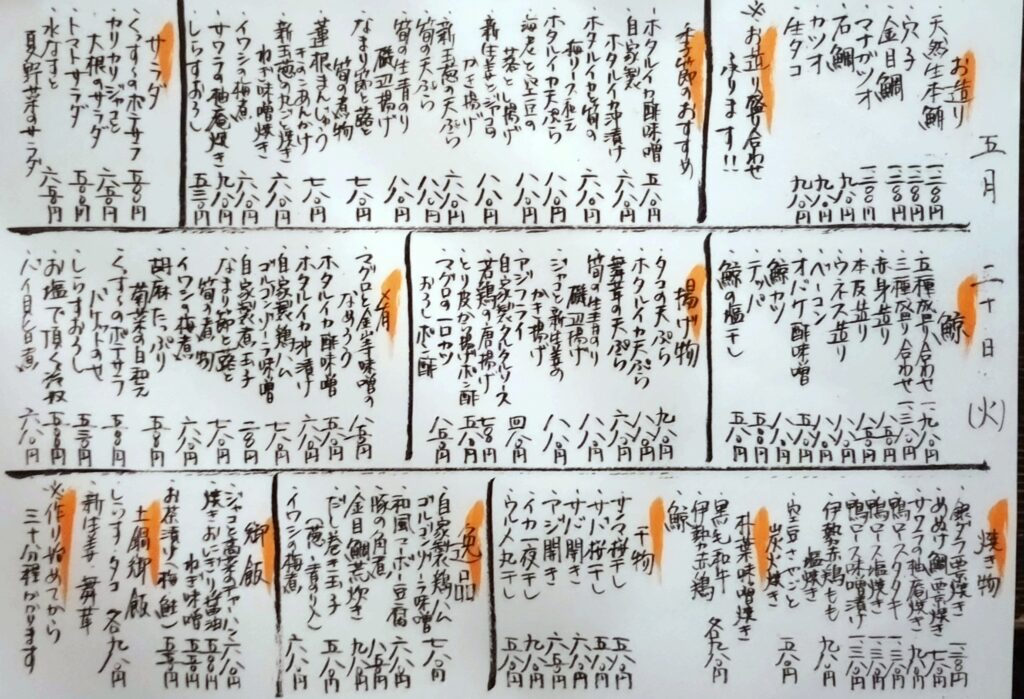 五月 二十日(火)
お造り
・天然生本鮪 一二八〇円
・穴子
・金目鯛
・マナガツオ
・石鯛 九八〇円
・カツオ 九八〇円
・生タコ 九八〇円
※お造り盛り合わせ
あります!!
季節のおすすめ
・ホタルイカ酢味噌 五八〇円
・自家製
ホタルイカ沖漬け 六八〇円
・ホタルイカと筍の
・ホタルイカ天ぷら 八八〇円
・海老と空豆の
落とし揚げ 八八〇円
・新生姜とジャコの
かき揚げ 八八〇円
・新玉葱の天ぷら 六八〇円
・筍の天ぷら 八八〇円
・筍の生青のり
磯辺揚げ 八八〇円
・なまり節と蕗と
筍の煮物 七八〇円
・蓮根まんじゅう
きのこあんかけ 七八〇円
・新玉葱の丸ごと焼き
ねぎ味噌焼き 六八〇円
・イワシの梅煮 六八〇円
・サワラの柚庵焼き 九八〇円
・しらすおろし 五三〇円
サラダ
・くすくすのポテサラ 五八〇円
・カリカリジャコと
大根のサラダ 六五〇円
・トマトサラダ 五八〇円
・水なすと
夏野菜のサラダ 六五〇円
鯨
・五種盛り合わせ 一九八〇円
・三種盛り合わせ 一三八〇円
・赤身造り
・本皮造り
・ウネス造り
・ベーコン
・オバケ酢味噌
・鯨カツ
・テッパ
・鯨の塩干し
揚げ物
・タコの天ぷら 九八〇円
・ホタルイカ天ぷら 八八〇円
・舞茸の天ぷら 六八〇円
・筍の生青のり
磯辺揚げ 八八〇円
・ジャコと新生姜の
かき揚げ 八八〇円
・アジフライ
自家製タルタルソース 四八〇円
・若鶏の唐揚げ 七八〇円
・とり皮から揚げポン酢 五八〇円
・マグロの一口カツ
おろしポン酢 八五〇円
肴
・マグロと生味噌の
なめろう 八五〇円
・ホタルイカ酢味噌 五八〇円
・ホタルイカ沖漬け 六八〇円
・自家製鶏ハム
ゴルゴンゾーラ味噌 七八〇円
・自家製煮玉子 二八〇円
・なまり節と蕗と
筍の煮物 七八〇円
・イワシの梅煮 六八〇円
・胡麻たっぷり
菊菜の白和え 五八〇円
・くすくすのポテサラ
バケットのせ 五八〇円
・しらすおろし 五三〇円
・お塩で頂く冷奴 五八〇円
・バイ貝旨煮 六八〇円
焼き物
・銀ダラ西京焼き 一二八〇円
・あぬけ鯛西京焼き 七八〇円
・サワラの柚庵焼き 九八〇円
・鴨ロースタタキ 一三八〇円
・鴨ロース塩焼き 一三八〇円
・鴨ロース味噌漬け 一三八〇円
・伊勢赤鶏もも
塩焼き 九八〇円
・空豆さやごと
炭火焼き 五八〇円
朴葉味噌焼き
・黒毛和牛
・伊勢赤鶏
・鯨 各九八〇円
干物
・サンマ桜干し 五八〇円
・サバ桜干し 五八〇円
・サバ開き 六八〇円
・アジ開き 五八〇円
・イカ一夜干し 九八〇円
・ウルメ丸干し 五八〇円
逸品
・自家製鶏ハム
ゴルゴンゾーラ味噌 七八〇円
・和風マーボー豆腐 六八〇円
・豚の角煮 八五〇円
・金目鯛荒炊き 九八〇円
・だし巻き玉子
(葱、青のり入) 五八〇円
・イワシ梅煮 六八〇円
御飯
・ジャコと高菜のチャーハン 六八〇円
・焼きおにぎり醤油 五五〇円
ねぎ味噌 五五〇円
・お茶漬け(梅・鮭) 五五〇円
土鍋御飯
・しらす・タコ 各九八〇円
・新生姜・舞茸
※作り始めてから
三十分程かかります